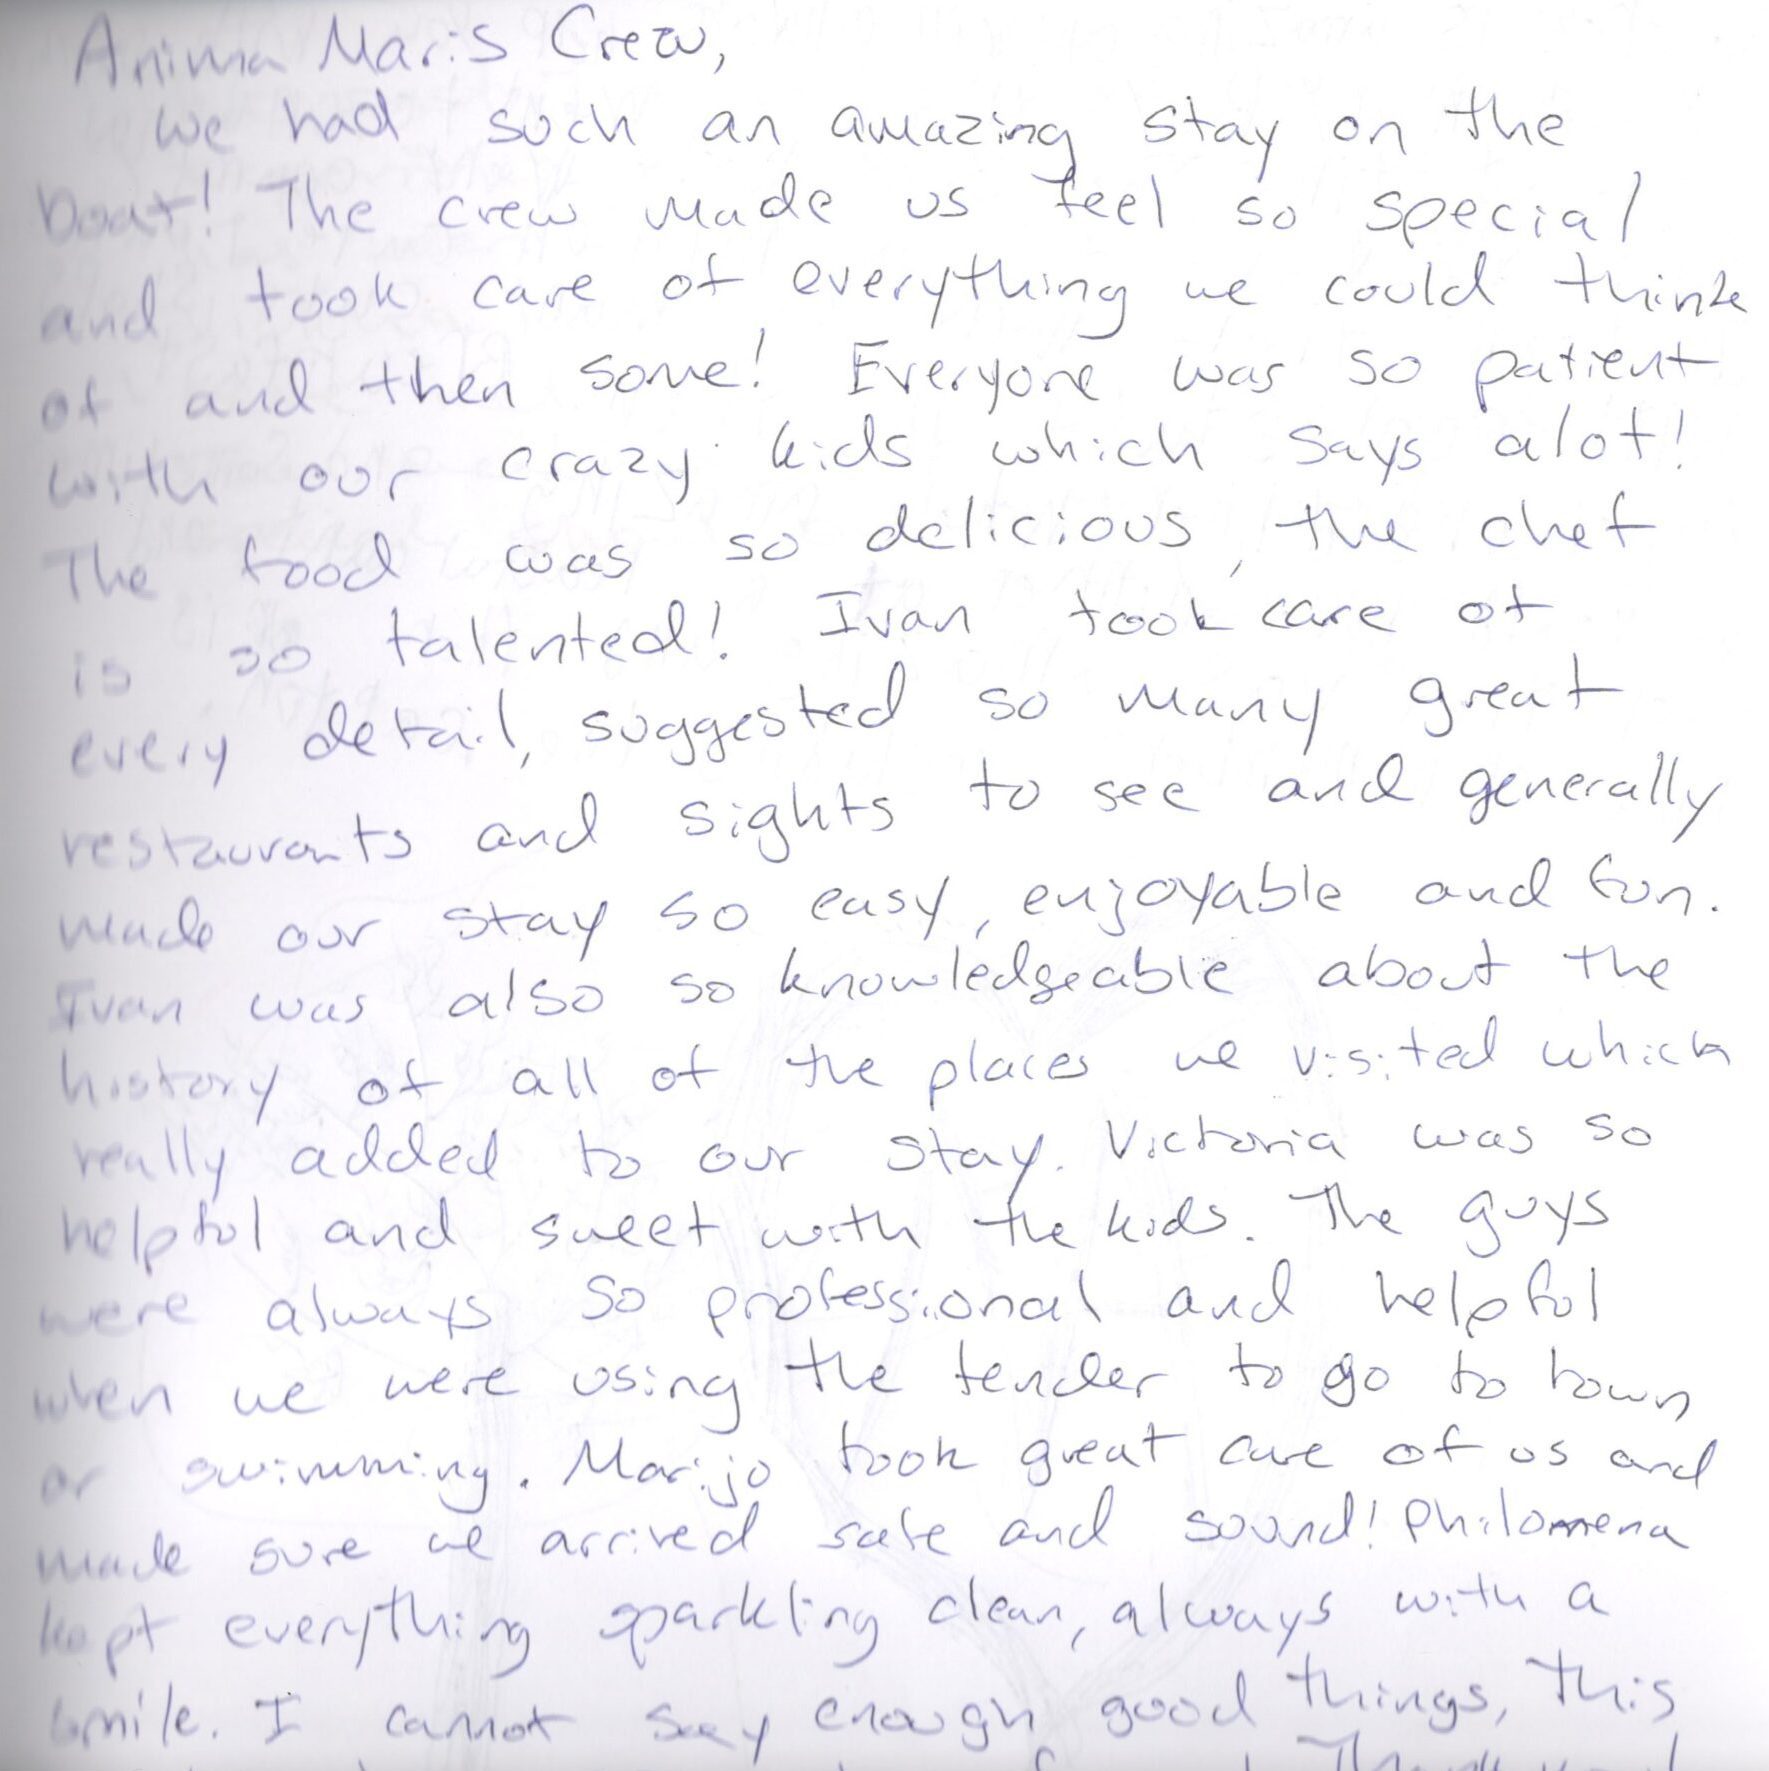 Anima Maris Crew,
we had such an amazing stay on the
boat! The crew made us feel so special
and took care of everything we could think
of and then some! Everyone was so patient
with our crazy kids which says alot!
The food was so delicious, the chef
is so talented! Ivan took care of
every detail, suggested so many great
restaurants and sights to see and generally
made our stay so easy, enjoyable and fun.
Ivan was also so knowledgeable about the
history of all of the places we visited which
really added to our stay. Victoria was so
helpful and sweet with the kids. The guys
were always so professional and helpful
when we were using the tender to go to town
or swimming. Marijo took great care of us and
made sure we arrived safe and sound! Philomena
kept everything sparkling clean, always with a
smile. I cannot say enough good things, this
Thank you!